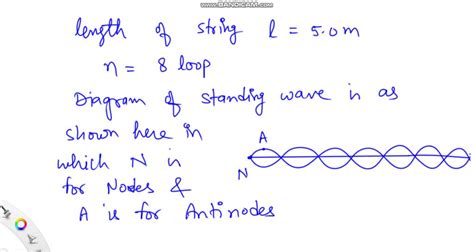 WWW.BANDICAM.COM
length of string l = 5.0m
n = 8 loop
Diagram of standing wave is as
shown here in
which N is
for Nodes &
A is for Antinodes
A
N